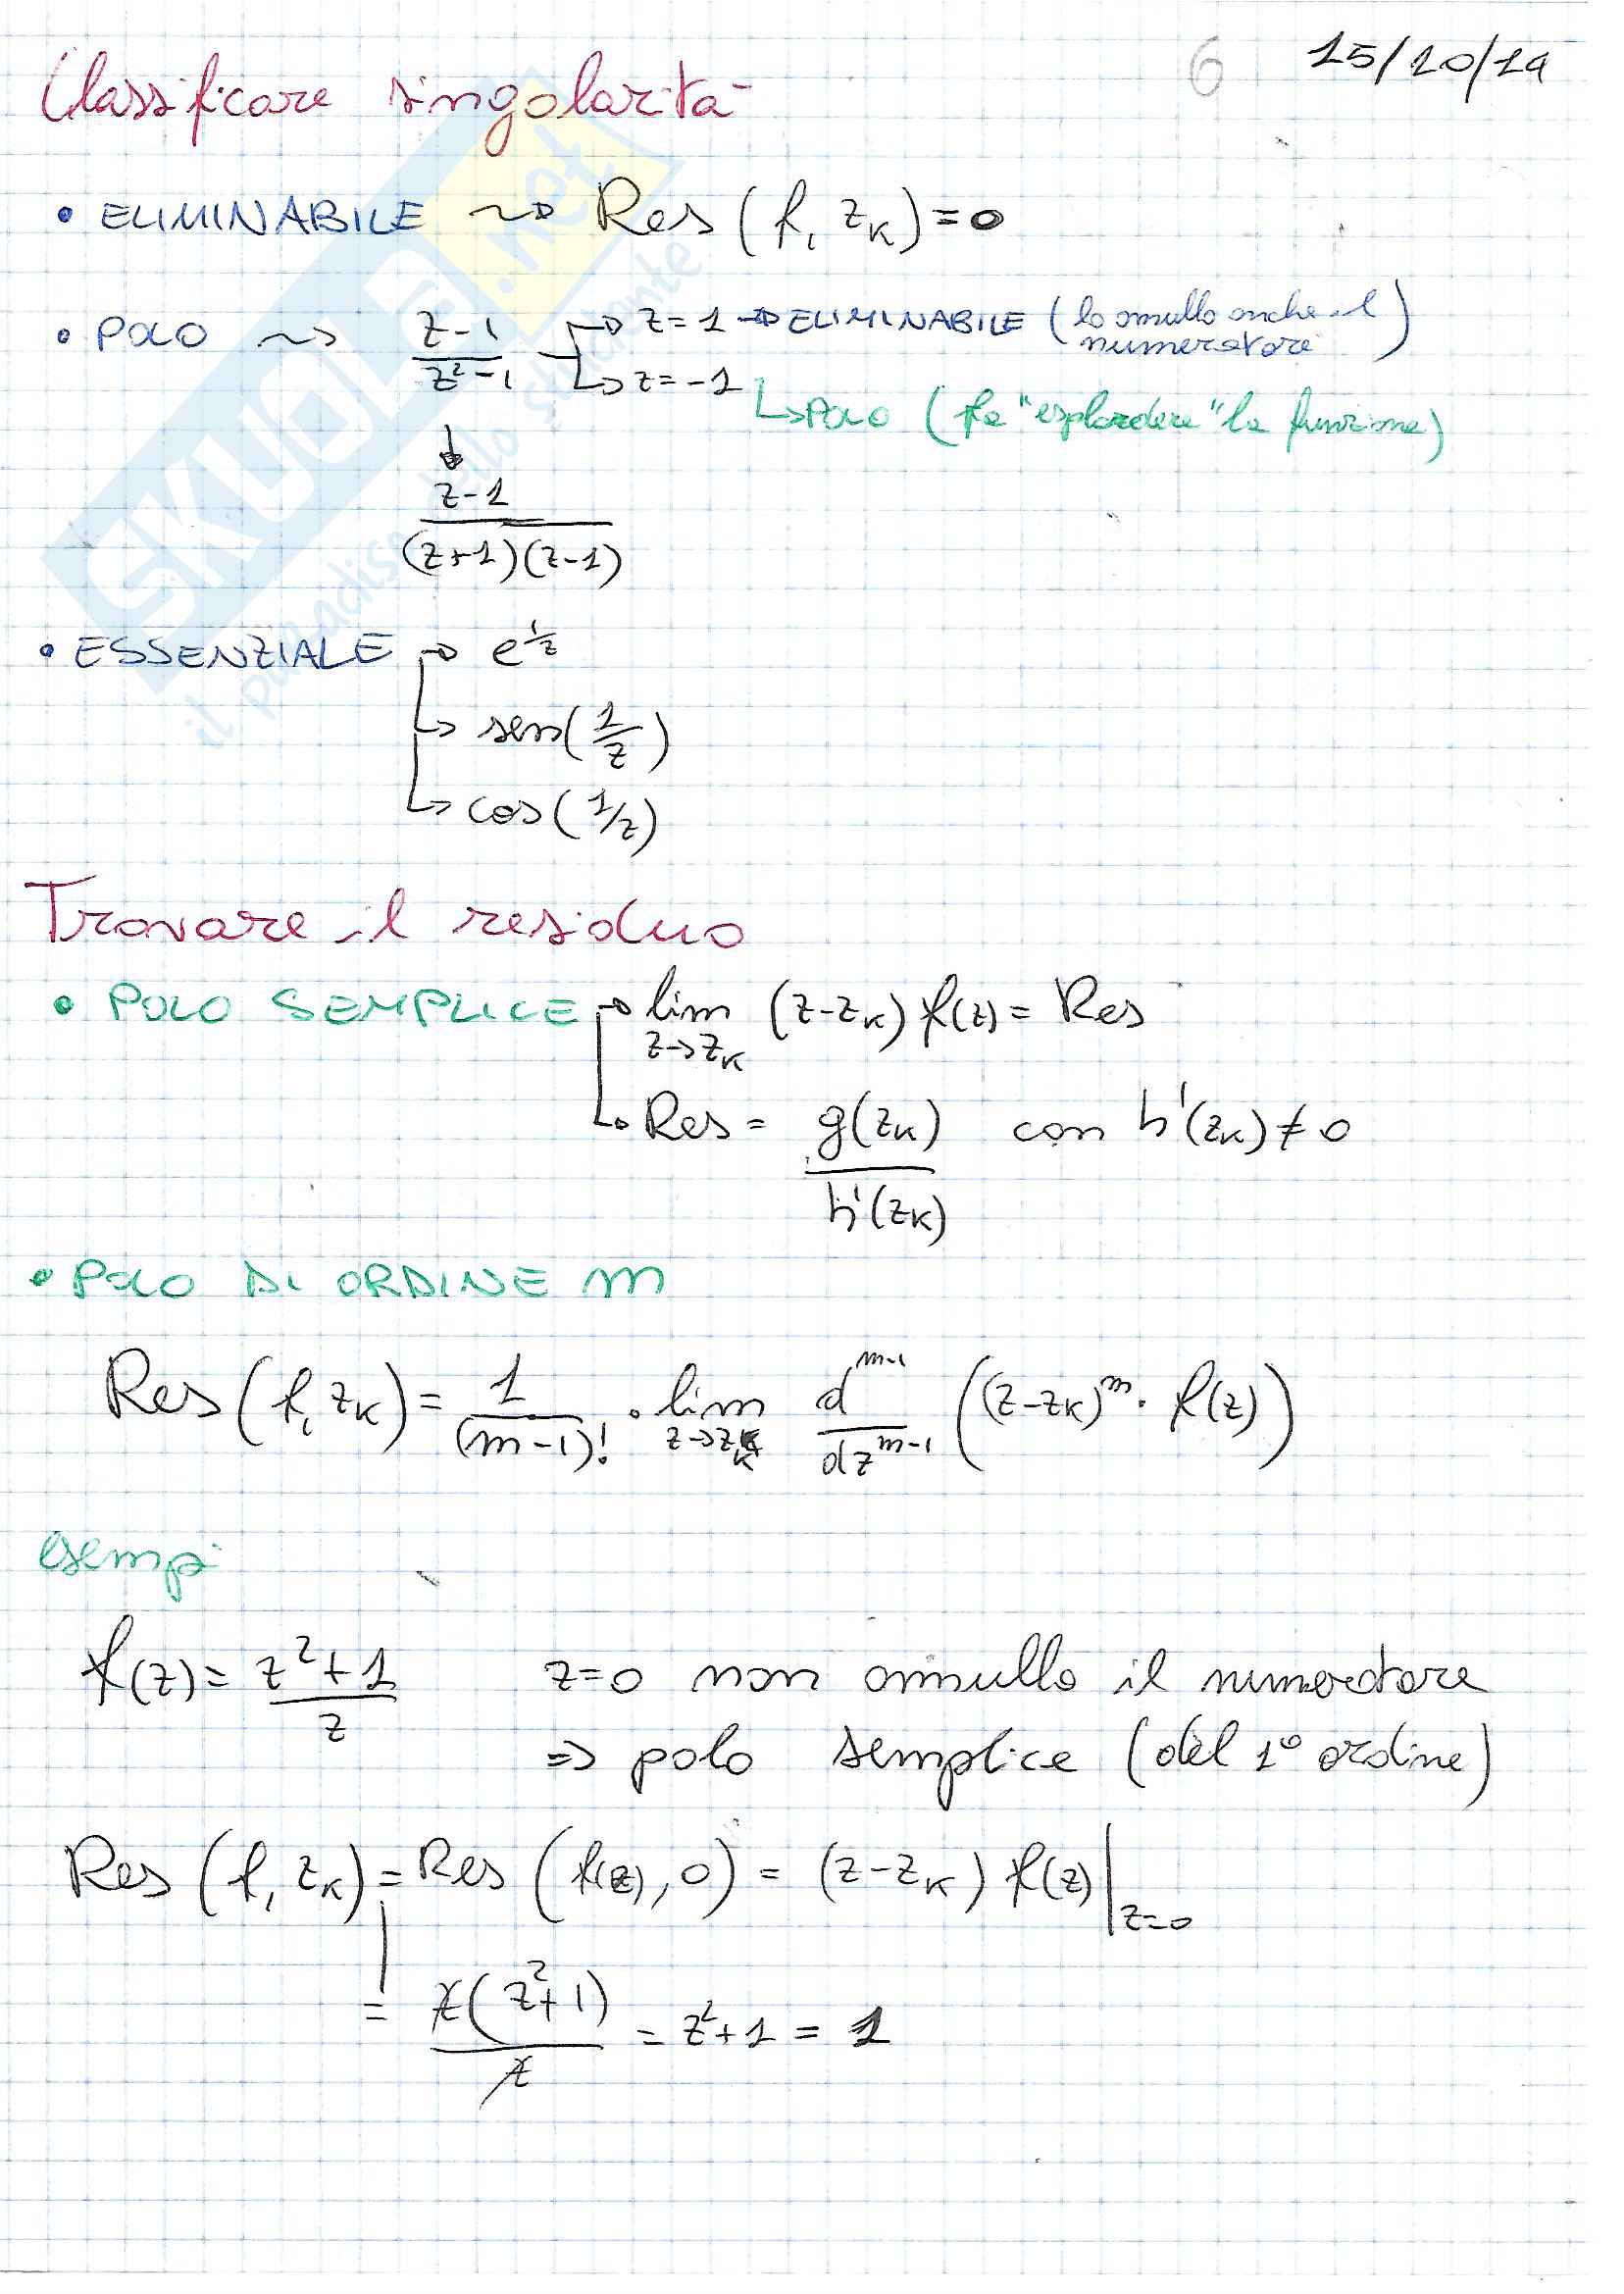 6 15/10/19
Classificare singolarità
• ELIMINABILE ~> Res (f, z_K) = 0
• POLO ~> (z-1)/(z²-1) → z=1 → ELIMINABILE (lo annullo anche il numeratore)
↳ z=-1 ↳ POLO (fa "esplodere" la funzione)
↓
(z-1)/((z+1)(z-1))
• ESSENZIALE → e^(1/z)
↳ sen(1/z)
↳ cos(1/z)
Trovare il residuo
• POLO SEMPLICE → lim_(z→z_K) (z-z_K) f(z) = Res
↳ Res = g(z_K)/h'(z_K) con h'(z_K) ≠ 0
• POLO DI ORDINE m
Res (f, z_K) = 1/(m-1)! · lim_(z→z_K) d^(m-1)/dz^(m-1) ((z-z_K)^m · f(z))
Esempi
f(z) = (z²+1)/z z=0 non annulla il numeratore
=> polo semplice (del 1° ordine)
Res (f, z_K) = Res (f(z), 0) = (z-z_K) f(z)|_(z=0)
= z(z²+1)/z = z²+1 = 1
SKUOLA.net
il paradiso dello studente